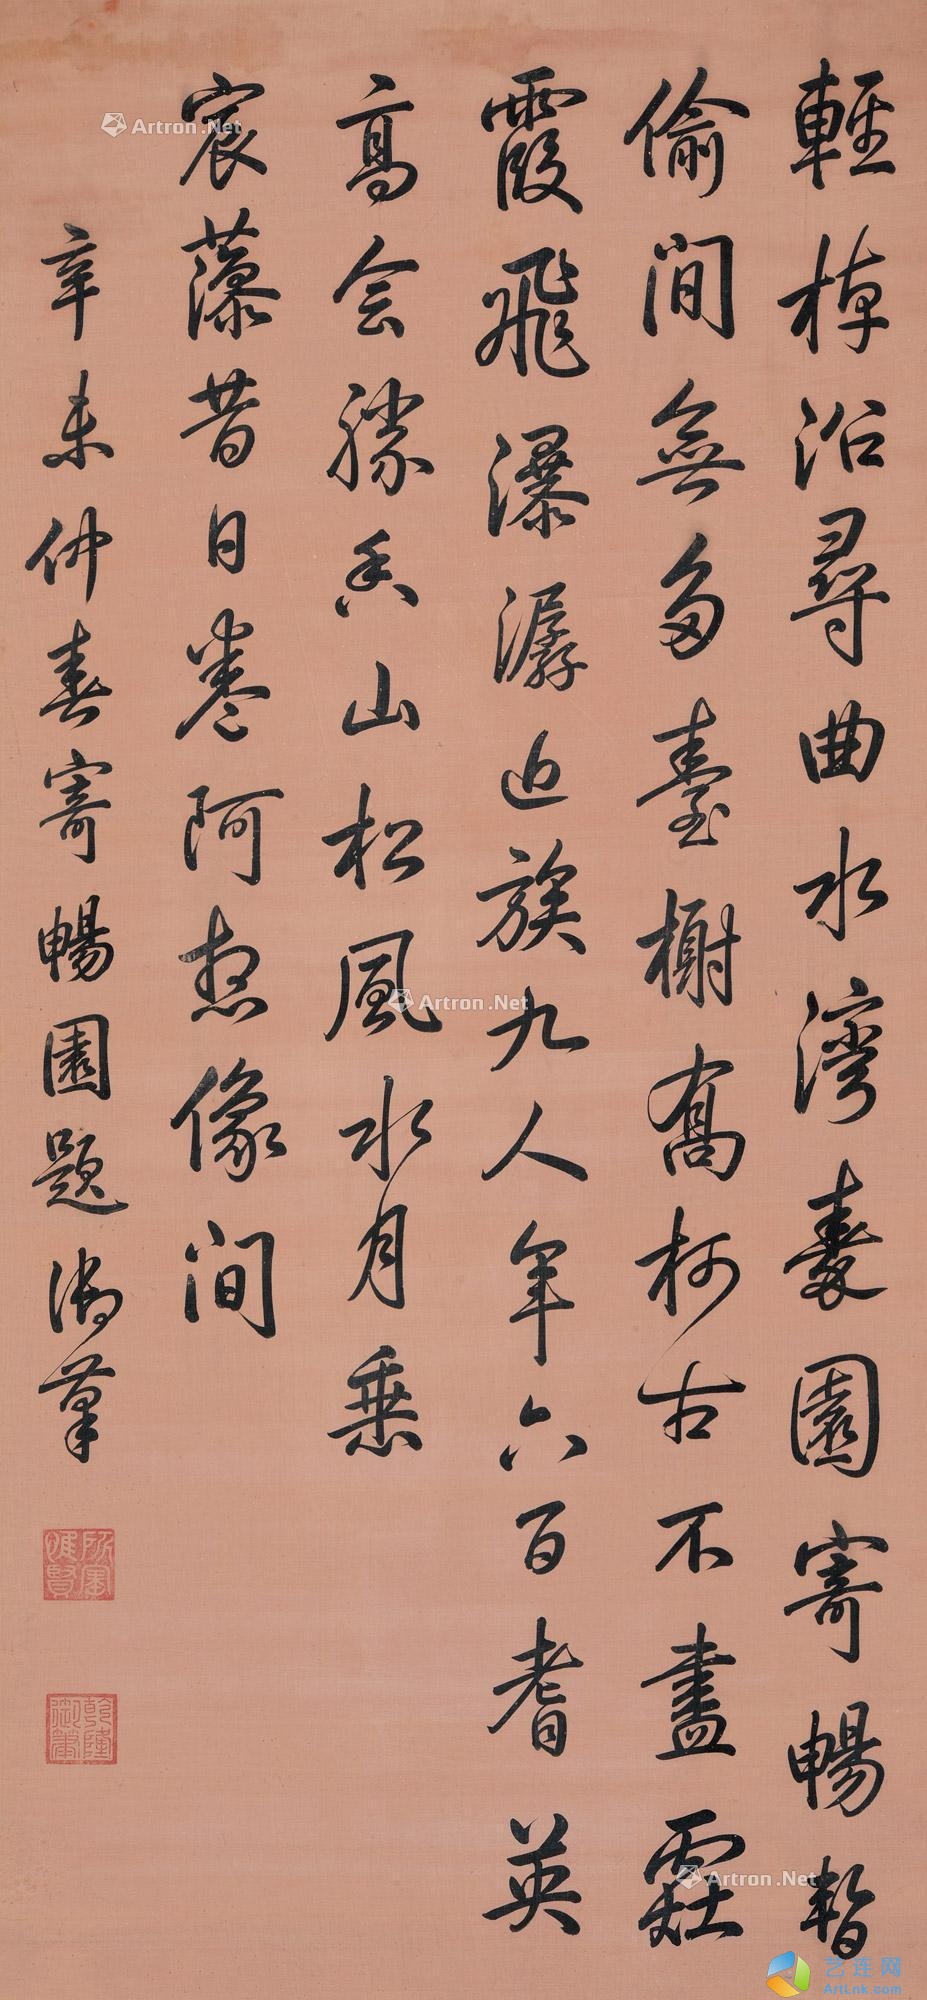 輕棹沿尋曲水灣秦園寄暢暫
偷閒無多臺榭喬柯古不盡
霞飛瀑潺近族九人年六百耆英
高會勝香山松風水月垂
宸藻昔日卷阿想像间
辛未仲春寄暢園題御筆
所寶惟賢
乾隆御筆
Artron.Net
Artron.Net
Artron.Net
艺连网
ArtLnk.com